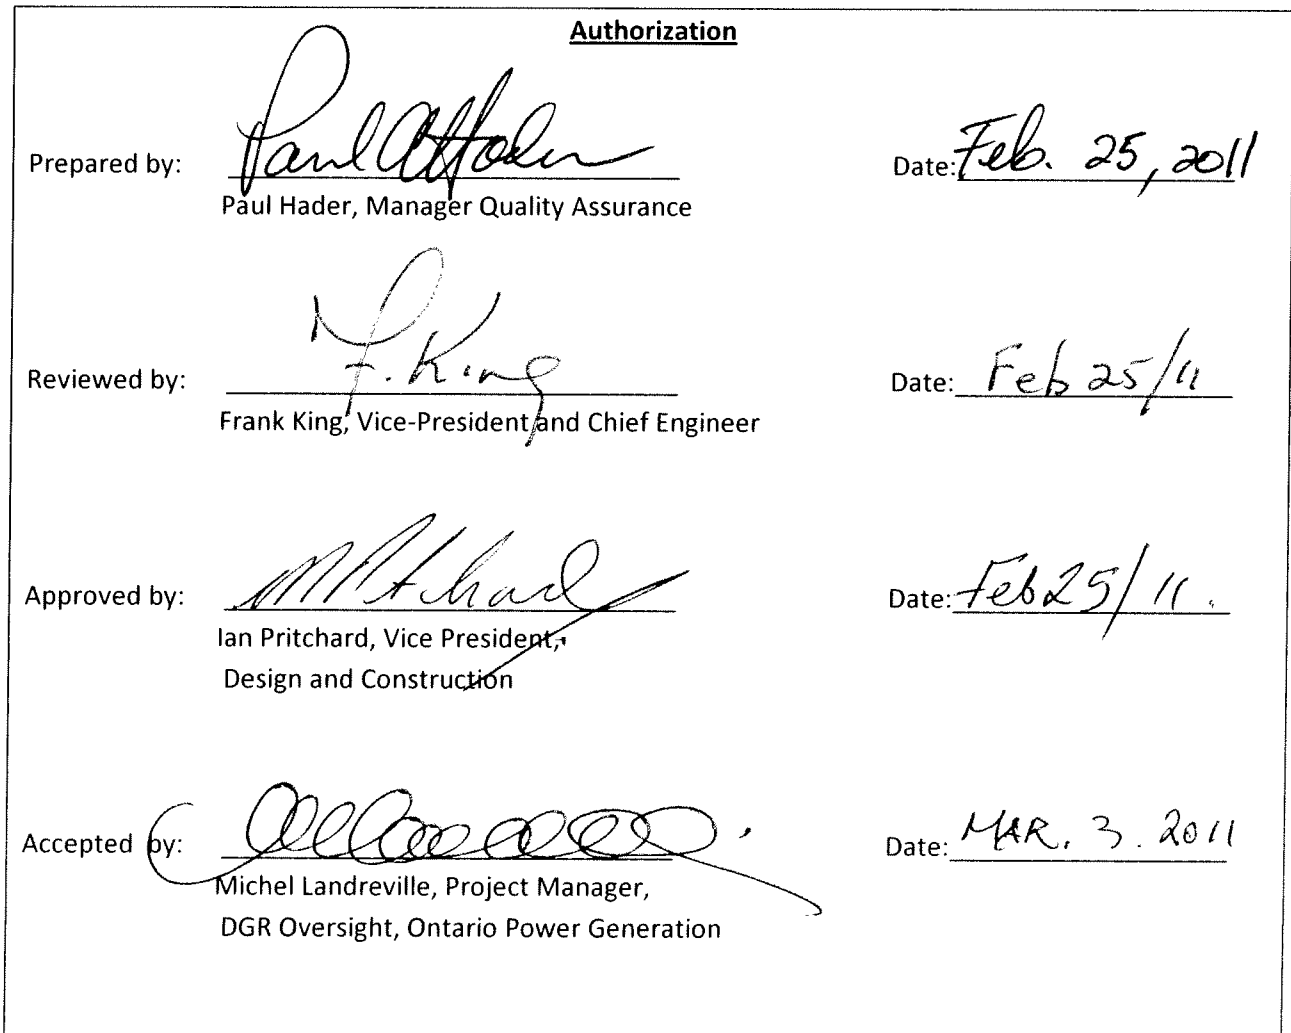 Authorization
Prepared by: Paul A Hader Date: Feb. 25, 2011
Paul Hader, Manager Quality Assurance
Reviewed by: F. King Date: Feb 25/11
Frank King, Vice-President and Chief Engineer
Approved by: Date: Feb 25/11.
Ian Pritchard, Vice President,
Design and Construction
Accepted by: Date: MAR. 3. 2011
Michel Landreville, Project Manager,
DGR Oversight, Ontario Power Generation